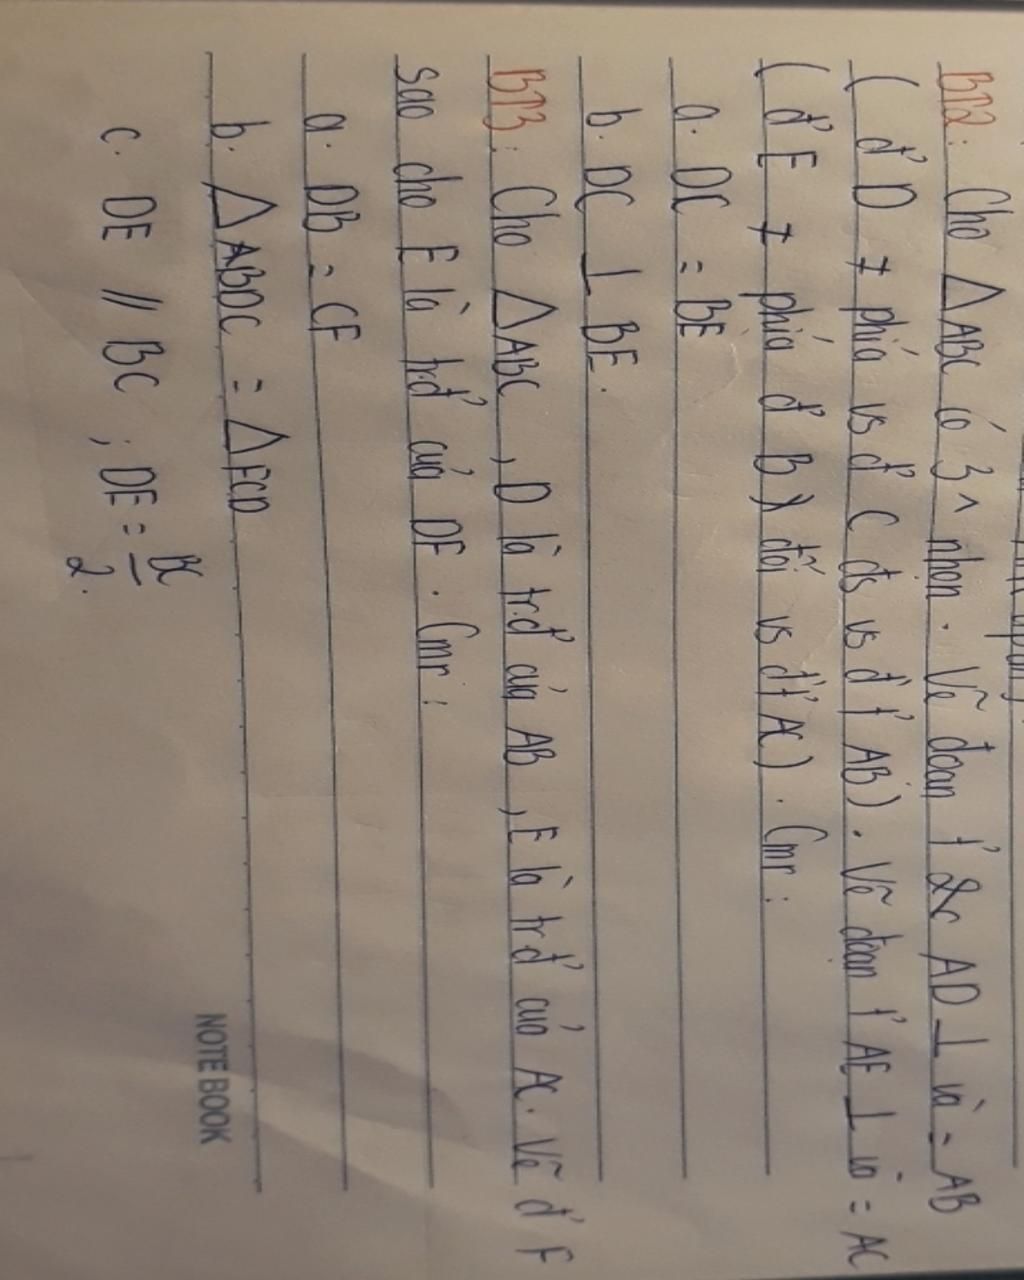 BT2: Cho △ABC có 3 ^ nhọn. Vẽ đoạn t' AD ⊥ và = AB
( đ' D ≠ phía vs đ' C đs vs đ't' AB). Vẽ đoạn t' AE ⊥ và = AC
( đ' E ≠ phía đ' B) đối vs đ't' AC). Cmr:
a. DC = BE
b. DC ⊥ BE.
BT3: Cho △ABC, D là tr.đ' của AB, E là tr.đ' của AC. Vẽ đ' F
sao cho E là tr.đ' của DF. Cmr:
a. DB = CF
b. △BDC = △FCD
c. DE // BC ; DE = BC/2.
NOTE BOOK